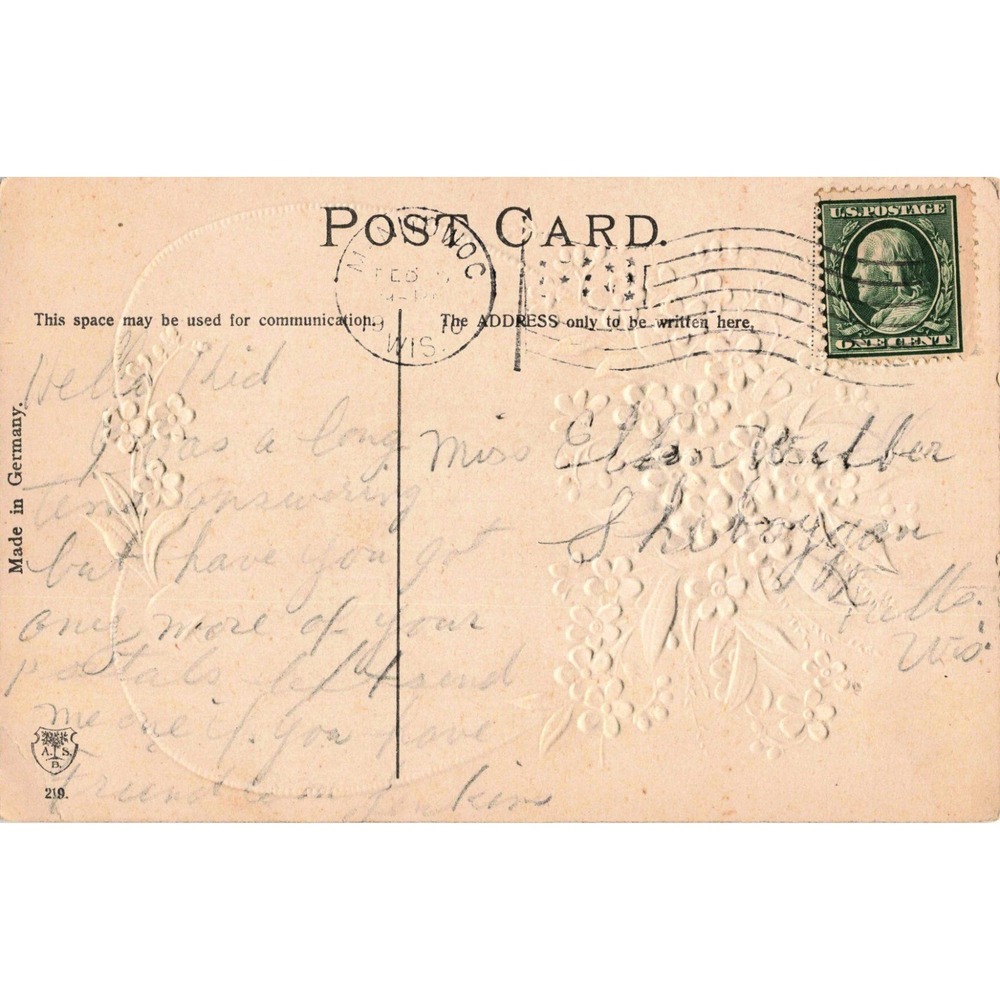 POST CARD.
U.S. POSTAGE
ONE CENT
FEB
WIS.
This space may be used for communication.
The ADDRESS only to be written here.
Made in Germany.
Hello Kid
I was a long
time answering
but have you got
any more of your
postals left send
me one if you have
Friend
Miss Ellen
Sheboygan
Falls.
Wis.
A. S.
B.
219.